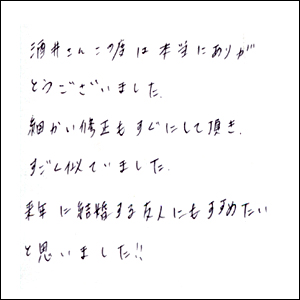 酒井さんこの度は本当にありが
とうございました.
細かい修正もすぐにして頂き,
すごく似ていました.
来年に結婚する友人にもすすめたい
と思いました!!